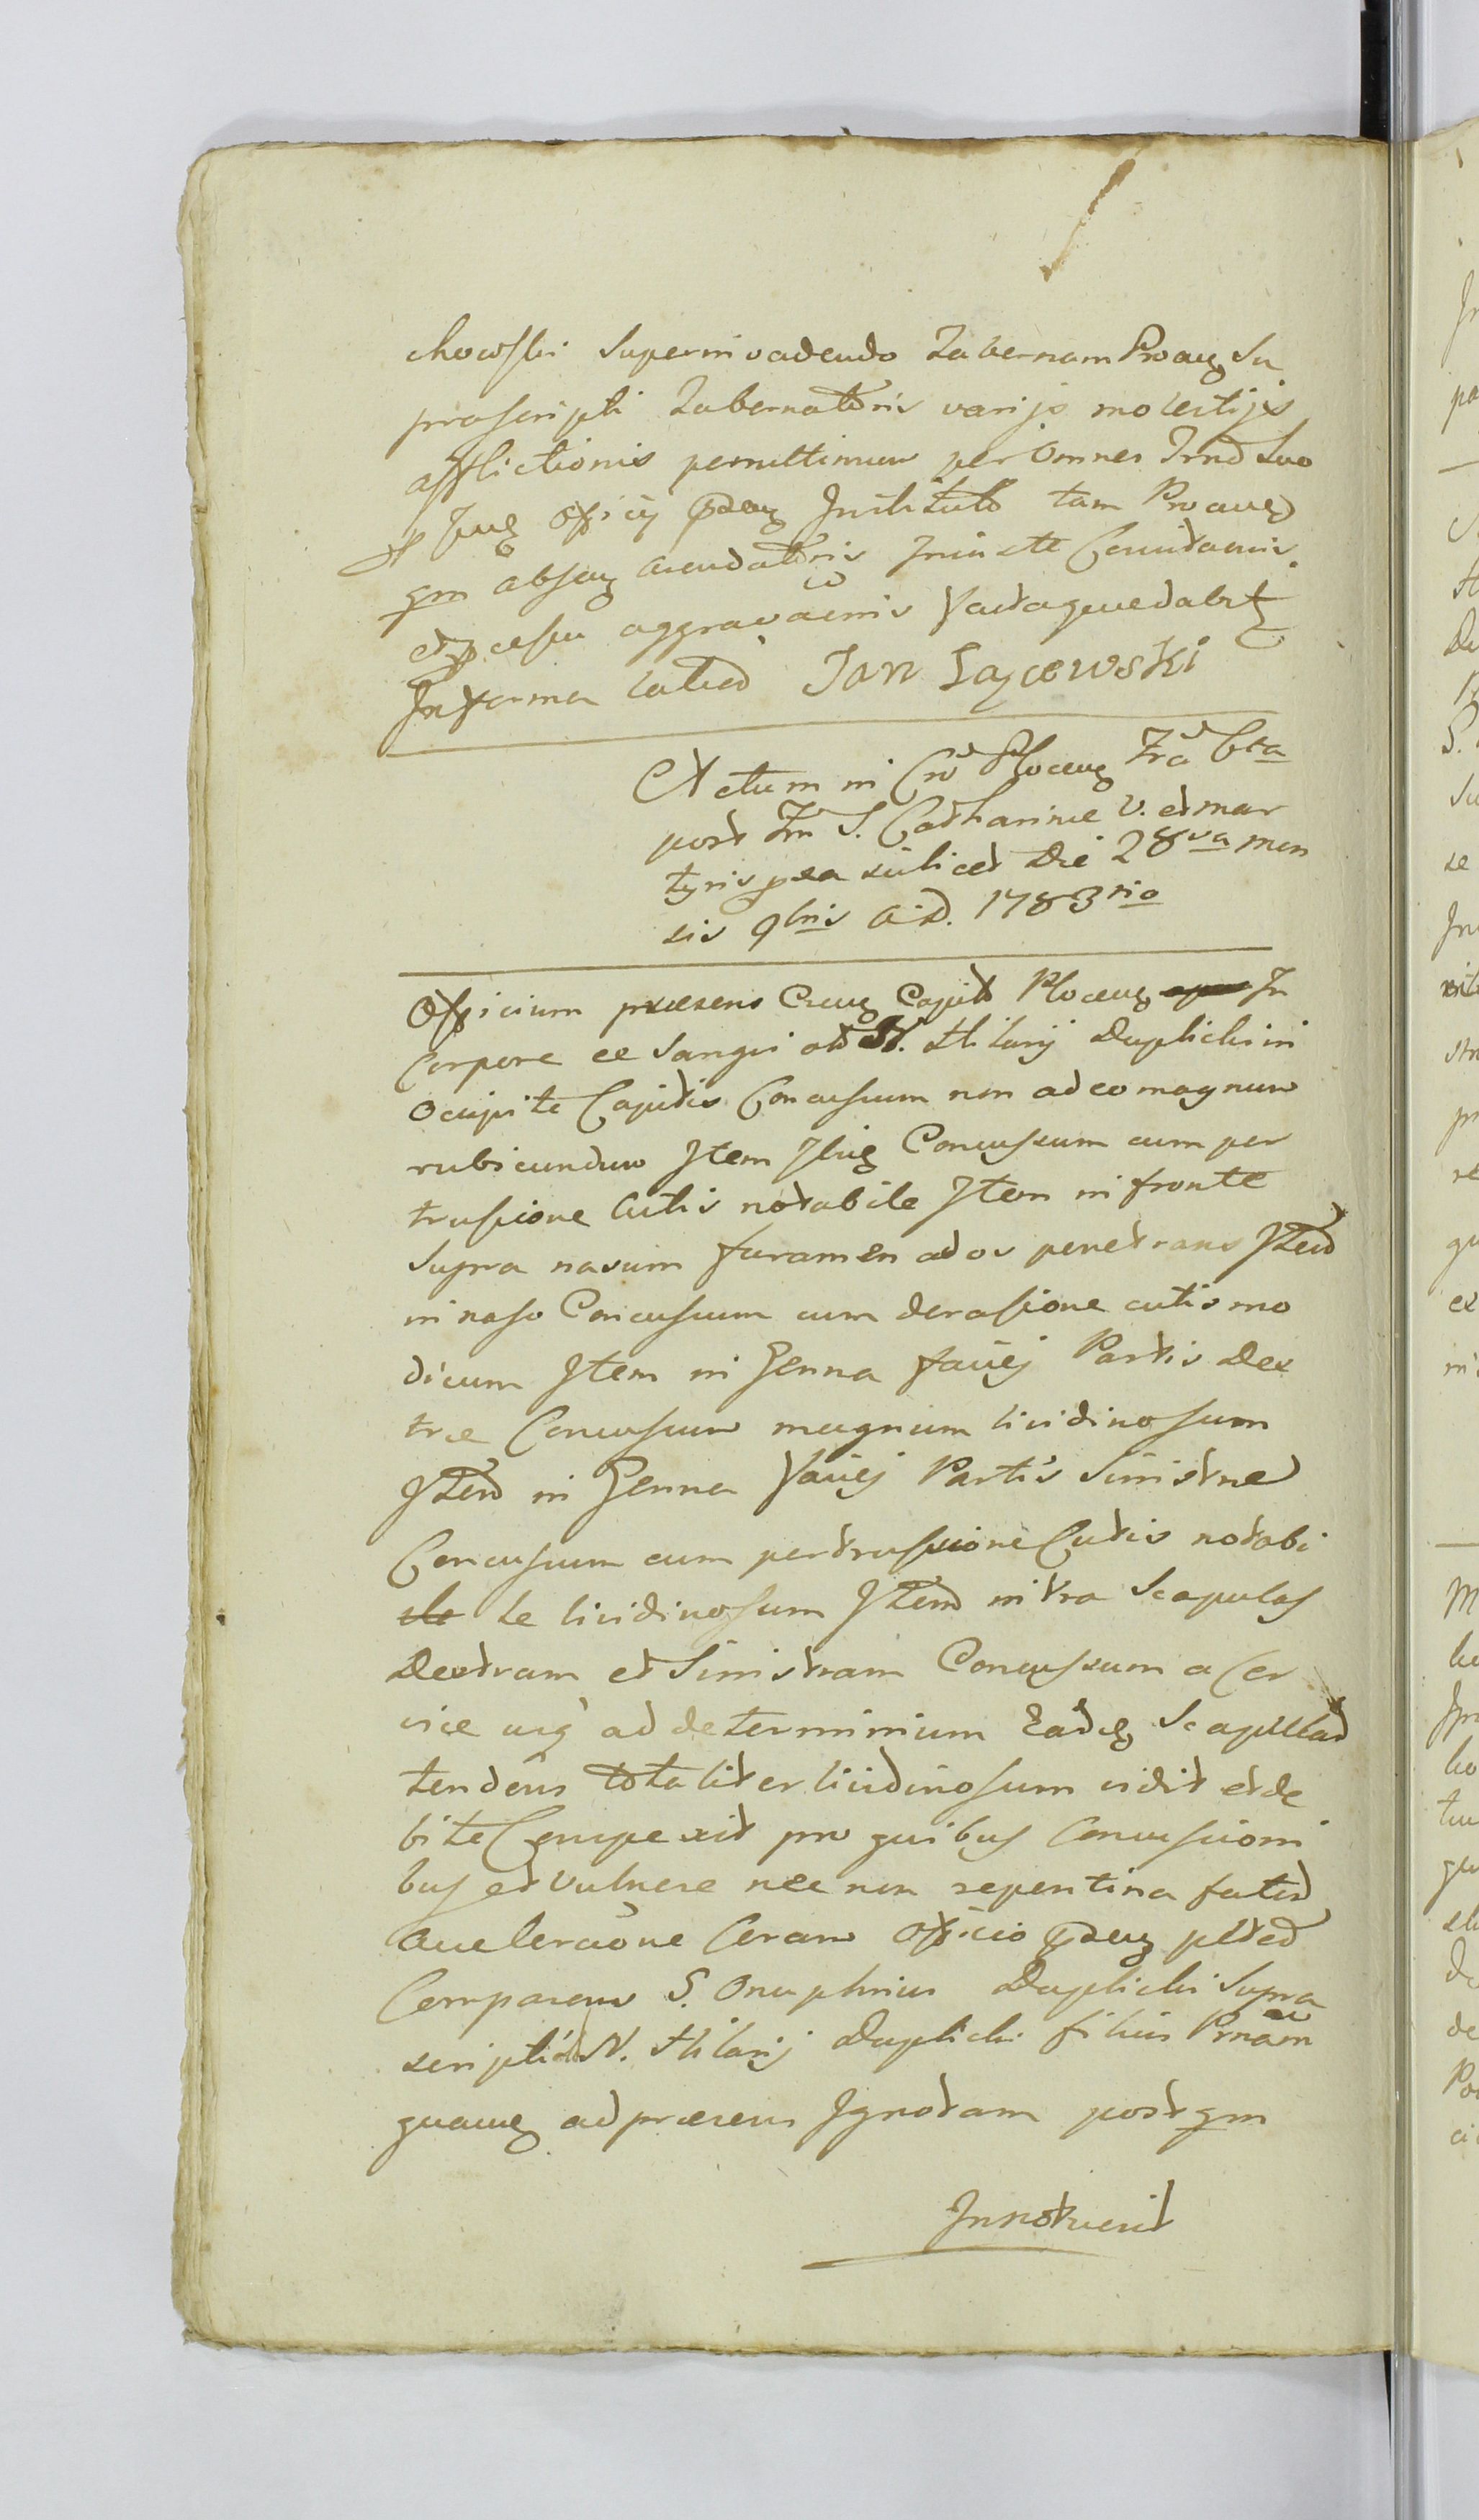 chowski Superinvadendo Tabernam Proaeq Su
prascripti Tabernatoris varijs molestijs
afflictionis permittimus per omnes Trnd Suo
et Officij Instituto tam
qm absq arendatoris Iniuste
et aggravaenis
In forma lated Jan Lajcewski
Actum in Cro Plocen Fra 6ta
post Fm S. Catharinae V. et mar
tyris pxa scilicet Die 28va men
sis 9bris A.D. 1783tio
Officium praesens Cren Capit Plocen In
Corpore ee Sangvi olld N. Hilarij Duplicki in
Occipite Capitis Concusum non adeo magnum
rubicundum Item Ibiq Concussum cum per
trusione Cutis notabile Item in fronte
Supra nasum furamen ad os penetrans Item
in naso Concusum cum derasione cutis mo
dicum Item in Genna faciej Partis Dex
trae Concusum magnum lividinosum
Item in Genna faciej Partis Sinistrae
Concusum cum pertrusione Cutis notabi
le lividinosum Item intra Scapulas
Dextram et Sinistram Concussum a Cer
vice usq ad determinium Eadeq Scapular
tendens totaliter lividinosum vidit et de
bite Conspexit pro quibus Concusioni
bus et vulnere nec non repentina fator
acceleraone Coram Officio psen
Comparens G. Onuphrius Duplicki Supra
scripti N. Hilarij Duplicki filius Prnam
ad praesens Ignotam postqm
Innotuerit